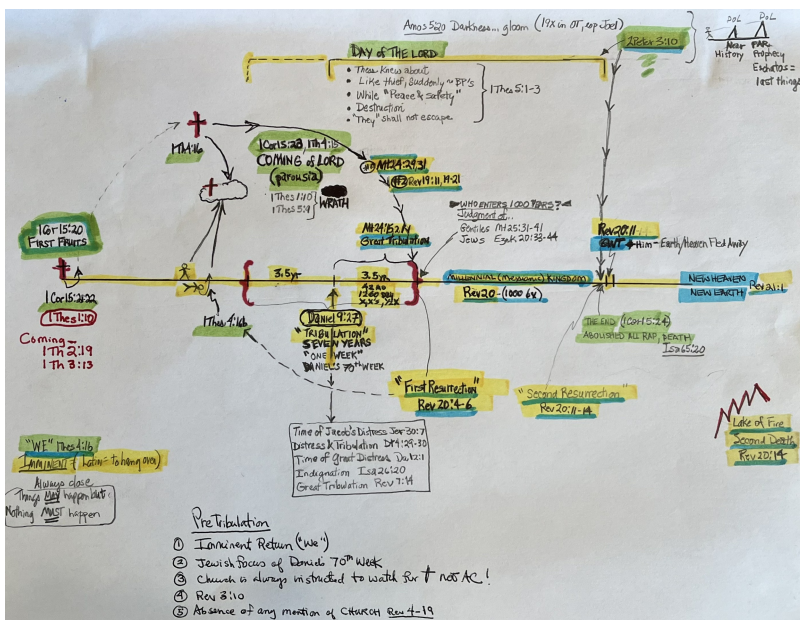 Amos 5:20 Darkness... gloom (19x in OT, esp Joel)
2Peter 3:10
DoL DoL
Near FAR
History Prophecy
Eschatos =
last things
DAY OF THE LORD
• Thess knew about
• Like thief, Suddenly ~ BP's
• While "Peace & safety"
• Destruction
• "They" shall not escape
1Thes 5:1-3
1Th 4:16
1Cor 15:23, 1Th 4:15
COMING of LORD
(parousia)
1Thes 1:10
1Thes 5:9
WRATH
Mt 24:29,31
#2 Rev 19:11, 19-21
WHO ENTERS 1000 YEARS?
Judgment of...
Gentiles Mt 25:31-41
Jews Ezek 20:33-44
1Cor 15:20
FIRST FRUITS
Great Tribulation
Rev 20:11
GWT Him - Earth/Heaven Fled Away
3.5yr
3.5yr
42 mo
1260 day
MILLENNIAL KINGDOM
Rev 20 - (1000 6x)
NEW HEAVEN
NEW EARTH
Rev 21:1
1Cor 15:22
1Thes 1:10
Coming -
1Th 2:19
1Th 3:13
1Thes 4:16b
Daniel 9:27
"TRIBULATION"
SEVEN YEARS
"ONE WEEK"
DANIEL'S 70th WEEK
THE END (1Cor 15:24)
ABOLISHED ALL RAP, DEATH
Isa 65:20
"First Resurrection"
Rev 20:4-6
"Second Resurrection"
Rev 20:11-14
Lake of Fire
Second Death
Rev 20:14
Time of Jacob's Distress Jer 30:7
Distress & Tribulation Dt 4:29-30
Time of Great Distress Da 12:1
Indignation Isa 26:20
Great Tribulation Rev 7:14
"WE" 1Thes 4:16
IMMINENT - (Latin - to hang over)
Always close
Things MAY happen but
Nothing MUST happen
PreTribulation
① Imminent Return ("We")
② Jewish focus of Daniel's 70th Week
③ Church is always instructed to watch for † not AC!
④ Rev 3:10
⑤ Absence of any mention of CHURCH Rev 4-19